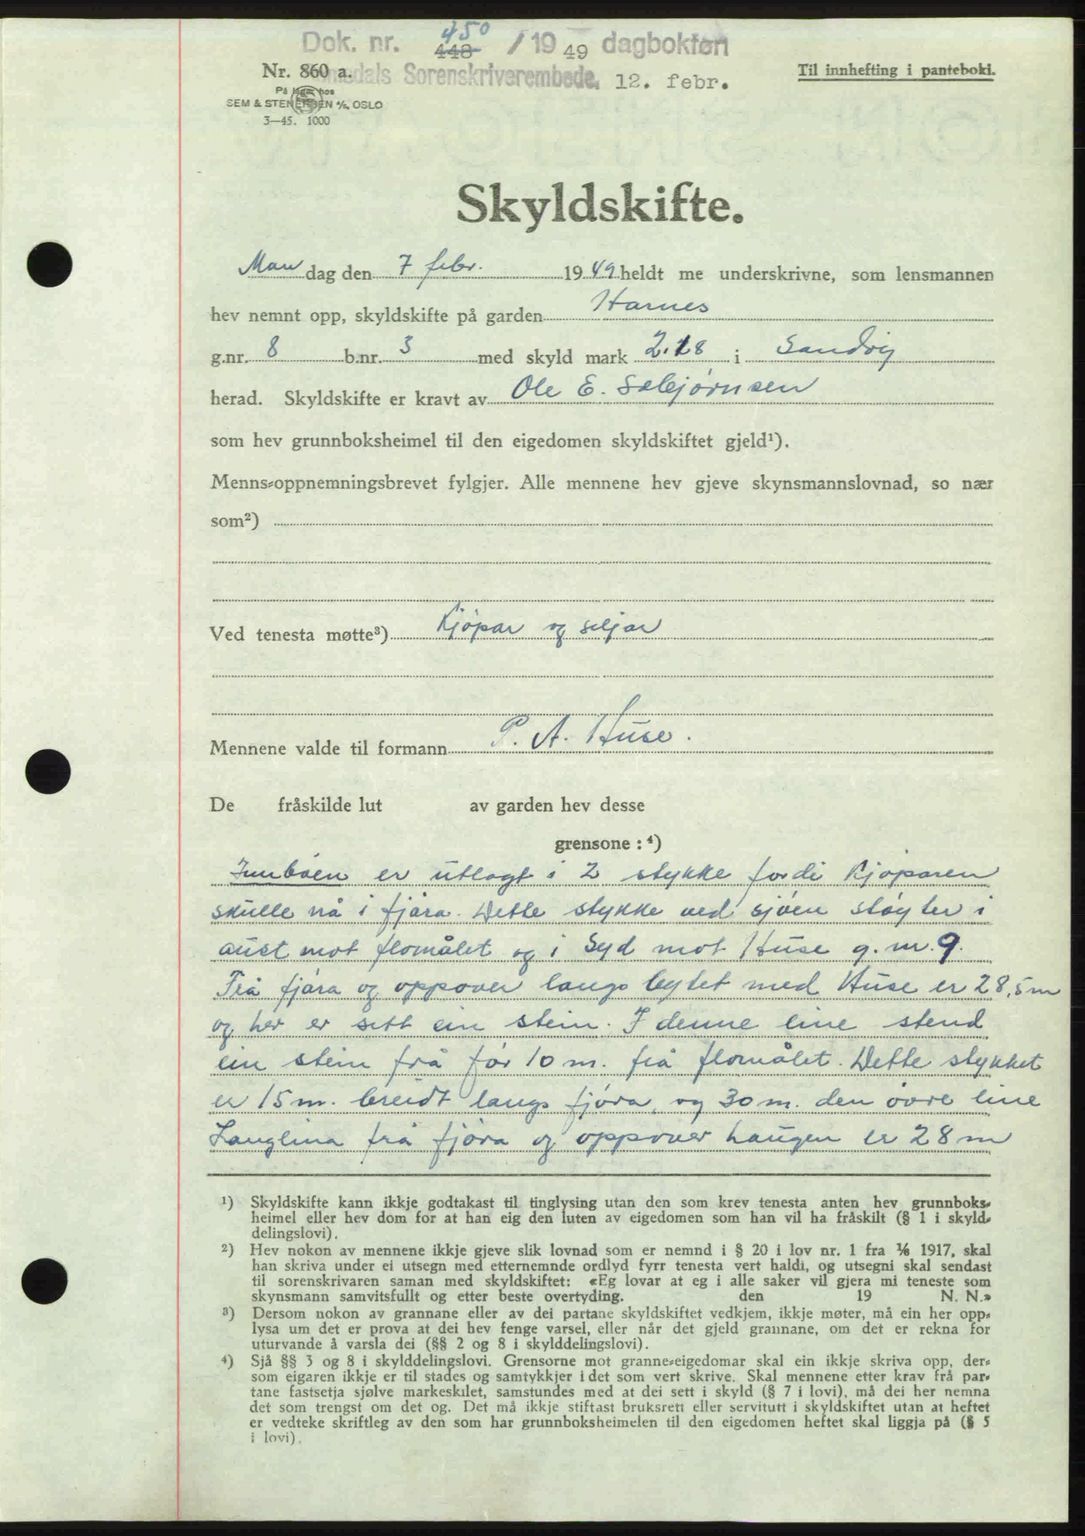 450
Dok. nr. 448 / 1949 dagbokføn
Nr. 860 a. Til innhefting i pantebok.
msdals Sorenskriverembede, 12. febr.
På lager hos
SEM & STENERSEN A/S, OSLO
3—45. 1000
Skyldskifte.
Man dag den 7 febr. 1949 heldt me underskrivne, som lensmannen
hev nemnt opp, skyldskifte på garden Harnes
g.nr. 8 b.nr. 3 med skyld mark 2.18 i Sandøy
herad. Skyldskifte er kravt av Ole E. Sæbjørnsen
som hev grunnboksheimel til den eigedomen skyldskiftet gjeld¹).
Menns-oppnemningsbrevet fylgjer. Alle mennene hev gjeve skynsmannslovnad, so nær
som²)
Ved tenesta møtte³) Kjöpar og seljar
Mennene valde til formann P. A. Huse.
De fråskilde lut av garden hev desse
grensone : ⁴)
Innböen er utlagt i 2 stykke fordi kjöparen
skulle nå i fjåra. Dette stykke ved sjöen stöyter i
aust mot flomålet og i Syd mot Huse g.nr. 9.
Frå fjåra og oppover langs bytet med Huse er 28,5 m
og her er sett ein stein. I denne line stend
ein stein frå för 10 m. frå flomålet. Dette stykket
er 15 m. breidt langs fjöra, og 30 m. den övre line
Langlina frå fjöra og oppover haugen er 28 m
¹) Skyldskifte kann ikkje godtakast til tinglysing utan den som krev tenesta anten hev grunnboks-
heimel eller hev dom for at han eig den luten av eigedomen som han vil ha fråskilt (§ 1 i skyld-
delingslovi).
²) Hev nokon av mennene ikkje gjeve slik lovnad som er nemnd i § 20 i lov nr. 1 fra ⅙ 1917, skal
han skriva under ei utsegn med etternemnde ordlyd fyrr tenesta vert haldi, og utsegni skal sendast
til sorenskrivaren saman med skyldskiftet: «Eg lovar at eg i alle saker vil gjera mi teneste som
skynsmann samvitsfullt og etter beste overtyding. den 19 N. N.»
³) Dersom nokon av grannane eller av dei partane skyldskiftet vedkjem, ikkje møter, må ein her opp-
lysa um det er prova at dei hev fenge varsel, eller når det gjeld grannane, om det er rekna for
uturvande å varsla dei (§§ 2 og 8 i skylddelingslovi).
⁴) Sjå §§ 3 og 8 i skylddelingslovi. Grensorne mot granne-eigedomar skal ein ikkje skriva opp, der-
som eigaren ikkje er til stades og samtykkjer i det som vert skrive. Skal mennene etter krav frå par-
tane fastsetja sjølve markeskilet, samstundes med at dei sett i skyld (§ 7 i lovi), må dei her nemna
det som trengst om det og. Det må ikkje stiftast bruksrett eller servitutt i skyldskiftet utan at heftet
er vedteke skriftleg av den som har grunnboksheimelen til den eigedomen heftet skal liggja på (§ 5
i lovi).